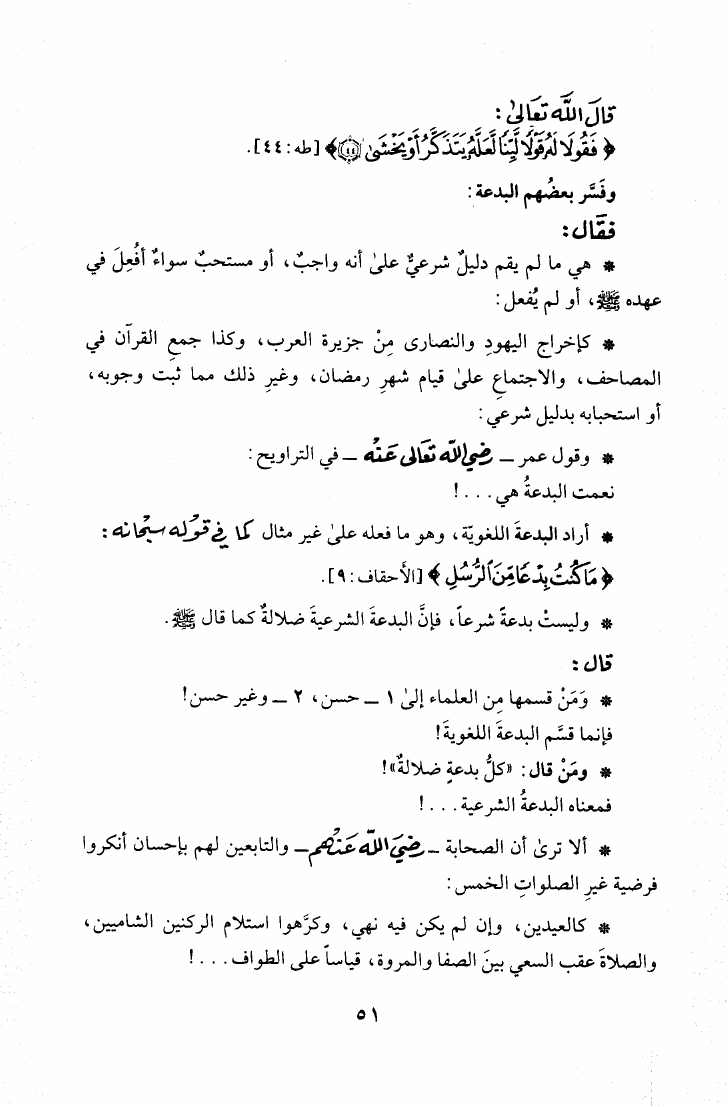 قَالَ اللَّه تَعَالىٰ :
﴿ فَقُولَا لَهُ قَوْلًا لَّيِّنًا لَّعَلَّهُ يَتَذَكَّرُ أَوْ يَخْشَىٰ ﴿٤٤﴾ ﴾ [طه : ٤٤].
وفَسَّر بعضُهم البدعة :
فقَال:
* هي ما لم يقم دليلٌ شرعيٌّ علىٰ أنه واجبٌ، أو مستحبٌ سواءٌ أفُعِلَ في
عهده ﷺ، أو لم يُفعل :
* كإخراج اليهودِ والنصارى مِنْ جزيرة العرب، وكذا جمع القرآن في
المصاحف، والاجتماعِ علىٰ قيام شهرِ رمضان، وغيرِ ذلك مما ثبت وجوبه،
أو استحبابه بدليل شرعي :
* وقول عمر ـ رضي الله تعَالى عَنْه ـ في التراويح :
نعمت البدعةُ هي . . . !
* أراد البدعةَ اللغويّة، وهو ما فعله علىٰ غير مثال كما في قوْله سبحَانه :
﴿ مَا كُنتُ بِدْعًا مِّنَ ٱلرُّسُلِ ﴾ [الأحقاف : ٩].
* وليستْ بدعةً شرعاً، فإنَّ البدعةَ الشرعيةَ ضلالةٌ كما قال ﷺ.
قال :
* وَمَنْ قسمها مِن العلماء إلىٰ ١ ـ حسن، ٢ ـ وغير حسن!
فإنما قسَّم البدعةَ اللغويةَ!
* ومَنْ قال : «كلُّ بدعةٍ ضلالةٌ»!
فمعناه البدعةُ الشرعية . . . !
* ألا ترىٰ أن الصحابة ـ رضيَ الله عَنهُم ـ والتابعين لهم بإحسان أنكروا
فرضية غيرِ الصلواتِ الخمس :
* كالعيدين، وإن لم يكن فيه نهي، وكرَّهوا استلام الركنين الشاميين،
والصلاةَ عقب السعي بينَ الصفا والمروة، قياساً على الطواف . . . !
٥١